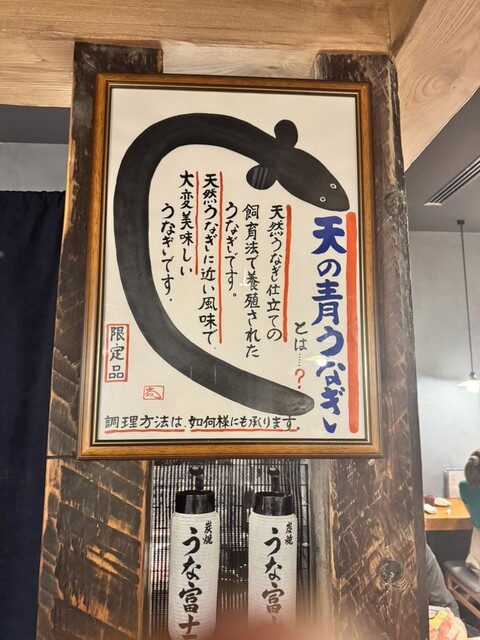 天の青うなぎ
とは……?
天然うなぎ仕立ての
飼育法で養殖された
うなぎです。
天然うなぎに近い風味で、
大変美味しい
うなぎです。
限定品
調理方法は、如何様にも承ります。
炭焼
うな富士
炭焼
うな富士